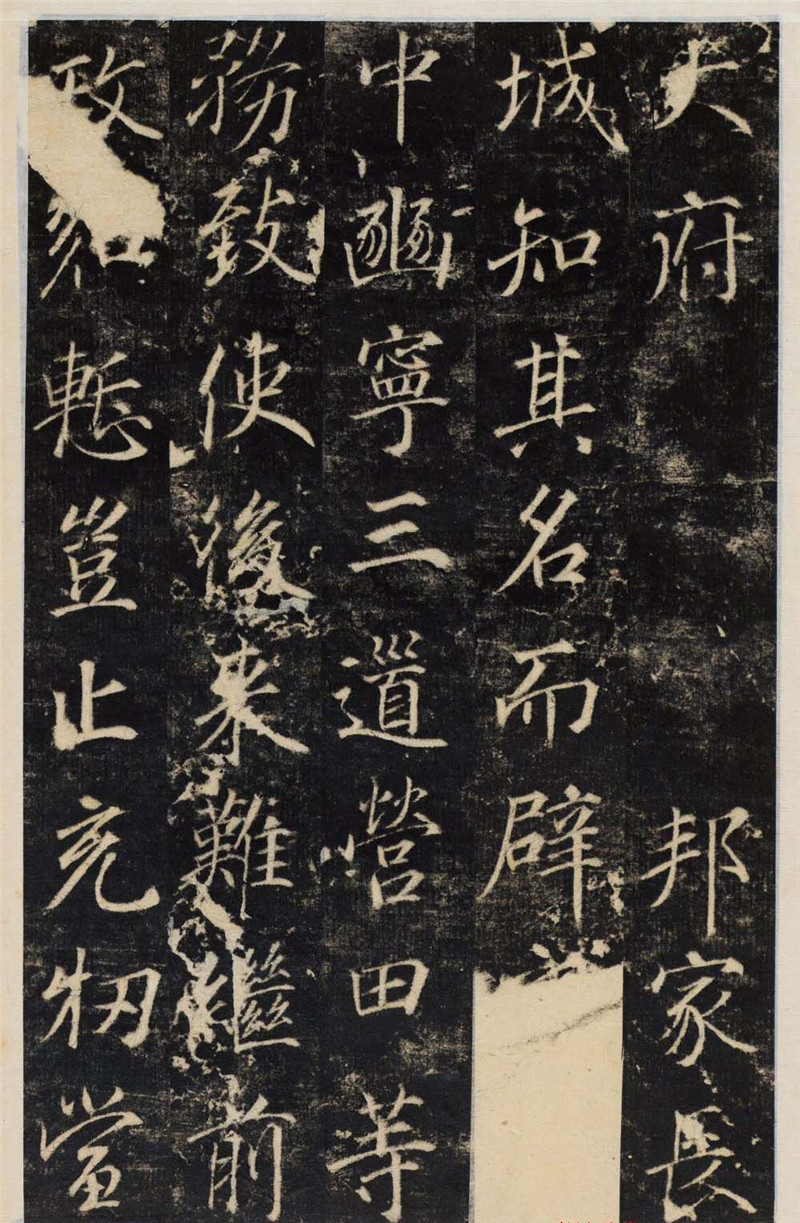 府邦家長
城知其名而辟
中豳寧三道營田等
務致使後來難繼前
政知慙豈止充牣當